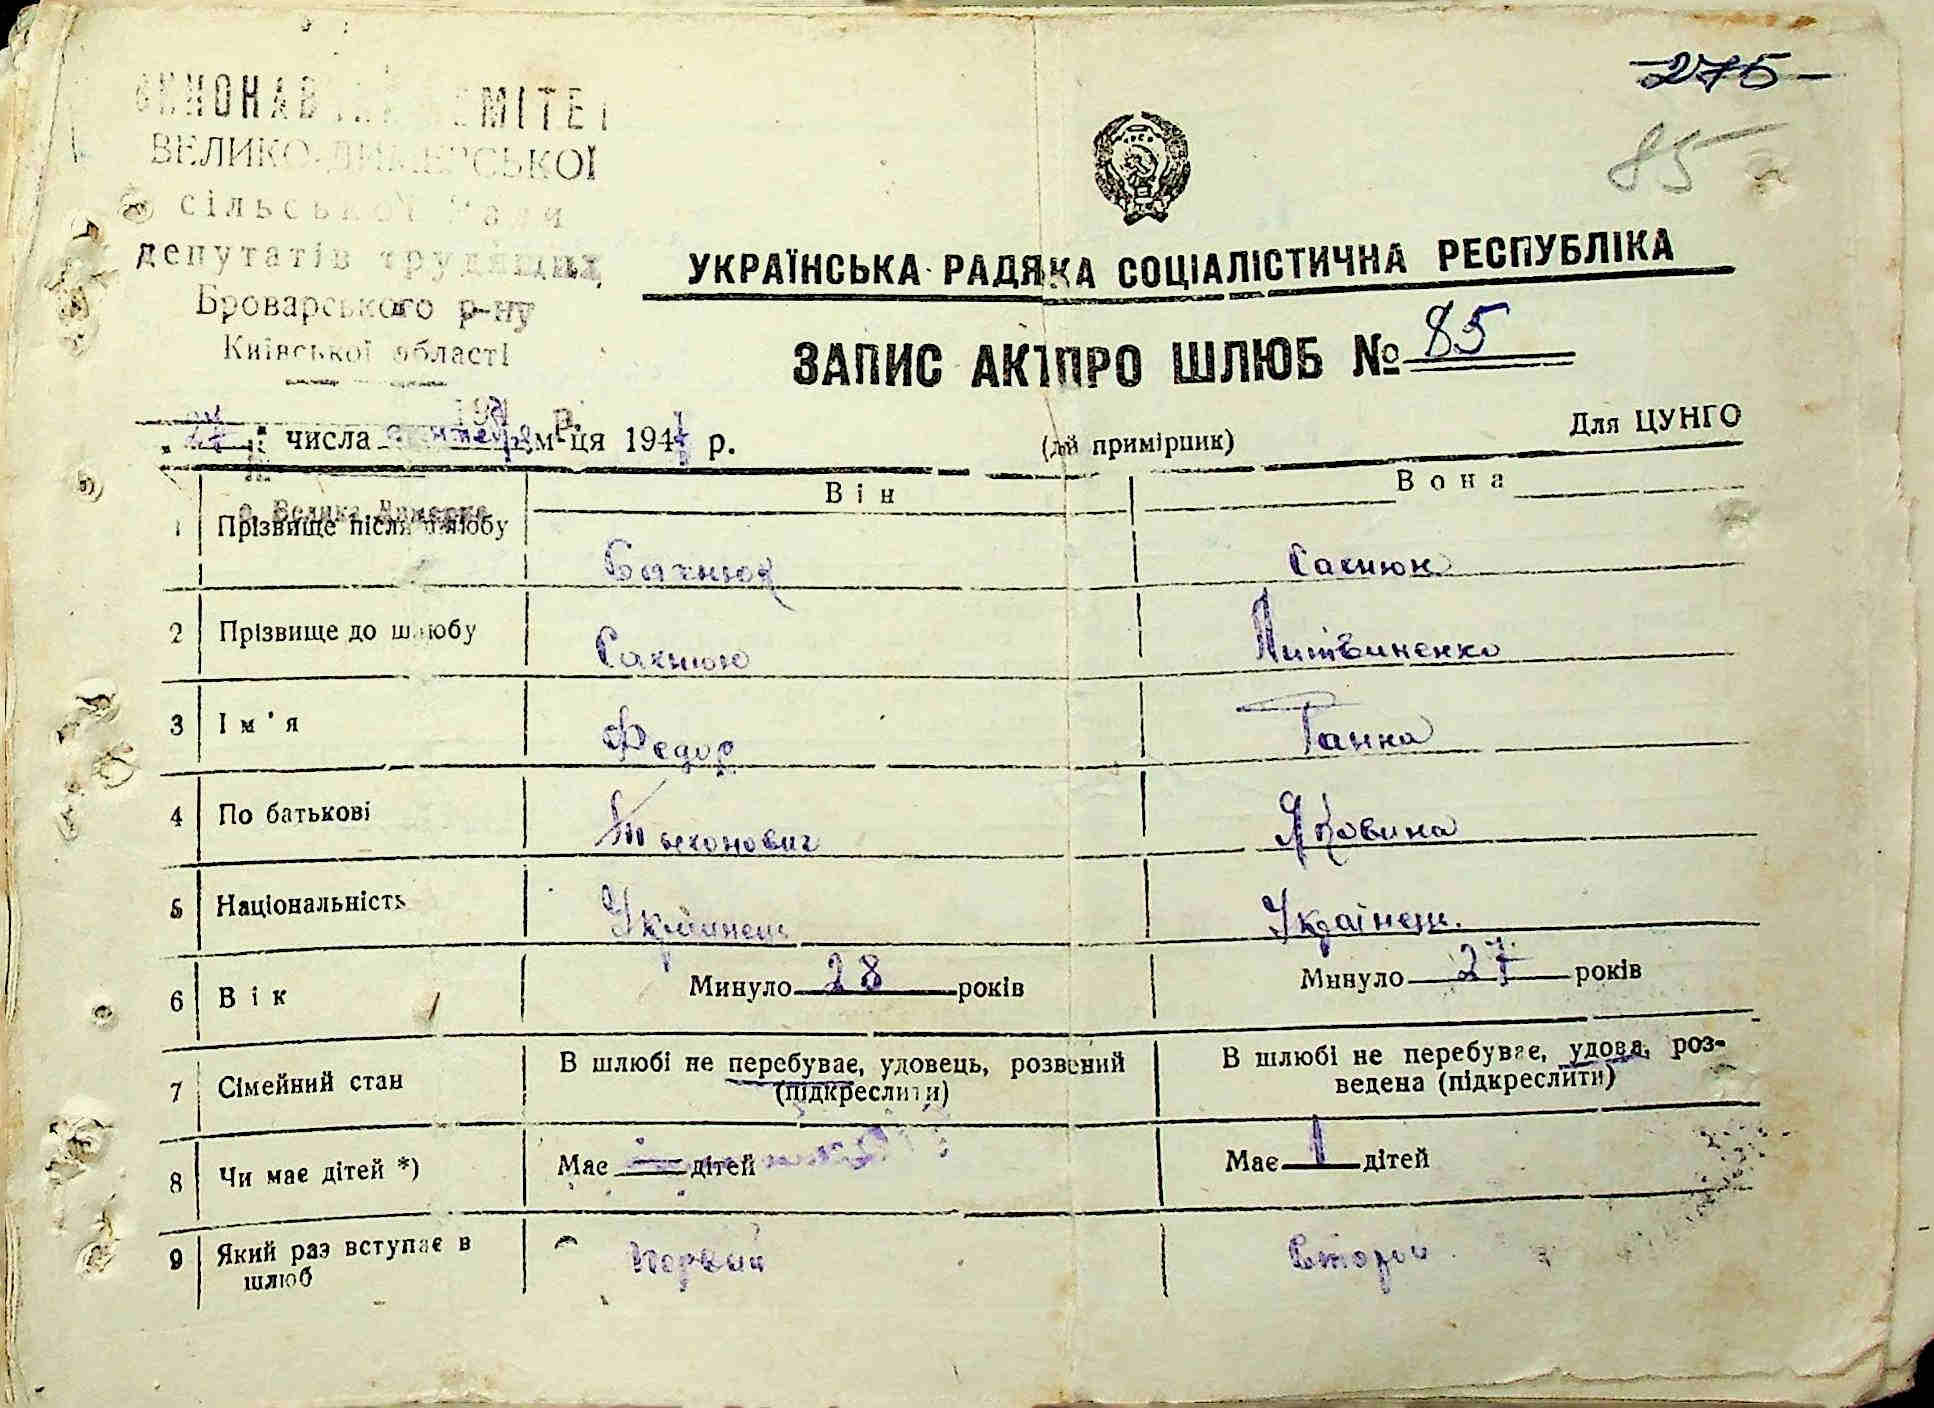 -275-
85
ВИКОНАВЧИЙ КОМІТЕТ
ВЕЛИКО-ДИМЕРСЬКОЇ
сільської Ради
депутатів трудящих
Броварського р-ну
Київської області
УКРАЇНСЬКА РАДЯНСЬКА СОЦІАЛІСТИЧНА РЕСПУБЛІКА
ЗАПИС АКТ ПРО ШЛЮБ № 85
194 р.
27 числа м-ця 194 р.
(й примірник)
Для ЦУНГО
с. Велика Димерка
Він Вона
1 Прізвище після шлюбу Сахнюк Сахнюк
2 Прізвище до шлюбу Сахнюк Литвиненко
3 Ім'я Федор Ганна
4 По батькові Тихонович Яковина
5 Національність Украінец Украінец.
6 Вік Минуло 28 років Минуло 27 років
7 Сімейний стан В шлюбі не перебуває, удовець, розвений (підкреслити) В шлюбі не перебуває, удова, роз-
ведена (підкреслити)
8 Чи має дітей *) Має — дітей Має 1 дітей
9 Який раз вступає в шлюб Первий Второй